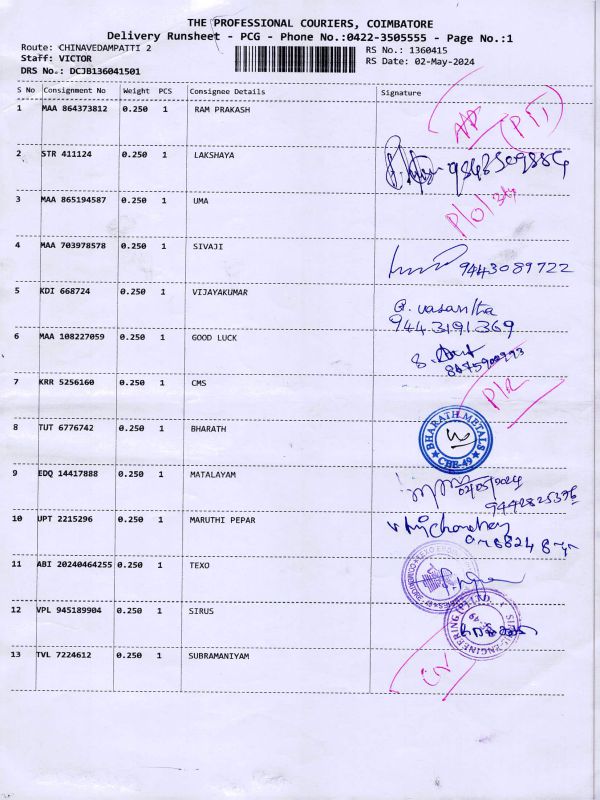 THE PROFESSIONAL COURIERS, COIMBATORE
Delivery Runsheet - PCG - Phone No.:0422-3505555 - Page No.:1
Route: CHINAVEDAMPATTI 2 RS No.: 1360415
Staff: VICTOR RS Date: 02-May-2024
DRS No.: DCJB136041501
S No Consignment No Weight PCS Consignee Details Signature
1 MAA 864373812 0.250 1 RAM PRAKASH
2 STR 411124 0.250 1 LAKSHAYA
3 MAA 865194587 0.250 1 UMA
4 MAA 703978578 0.250 1 SIVAJI 9443089722
5 KDI 668724 0.250 1 VIJAYAKUMAR
9443191369
6 MAA 108227059 0.250 1 GOOD LUCK
7 KRR 5256160 0.250 1 CMS
8 TUT 6776742 0.250 1 BHARATH BHARATH METALS CBE-49
9 EDQ 14417888 0.250 1 MATALAYAM 02/05/2024
10 UPT 2215296 0.250 1 MARUTHI PEPAR
11 ABI 20240464255 0.250 1 TEXO
12 VPL 945189904 0.250 1 SIRUS
13 TVL 7224612 0.250 1 SUBRAMANIYAM